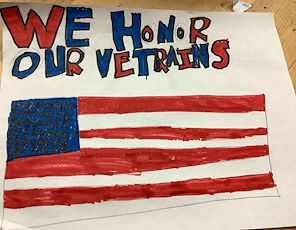 WE HONOR
OUR VETRAINS